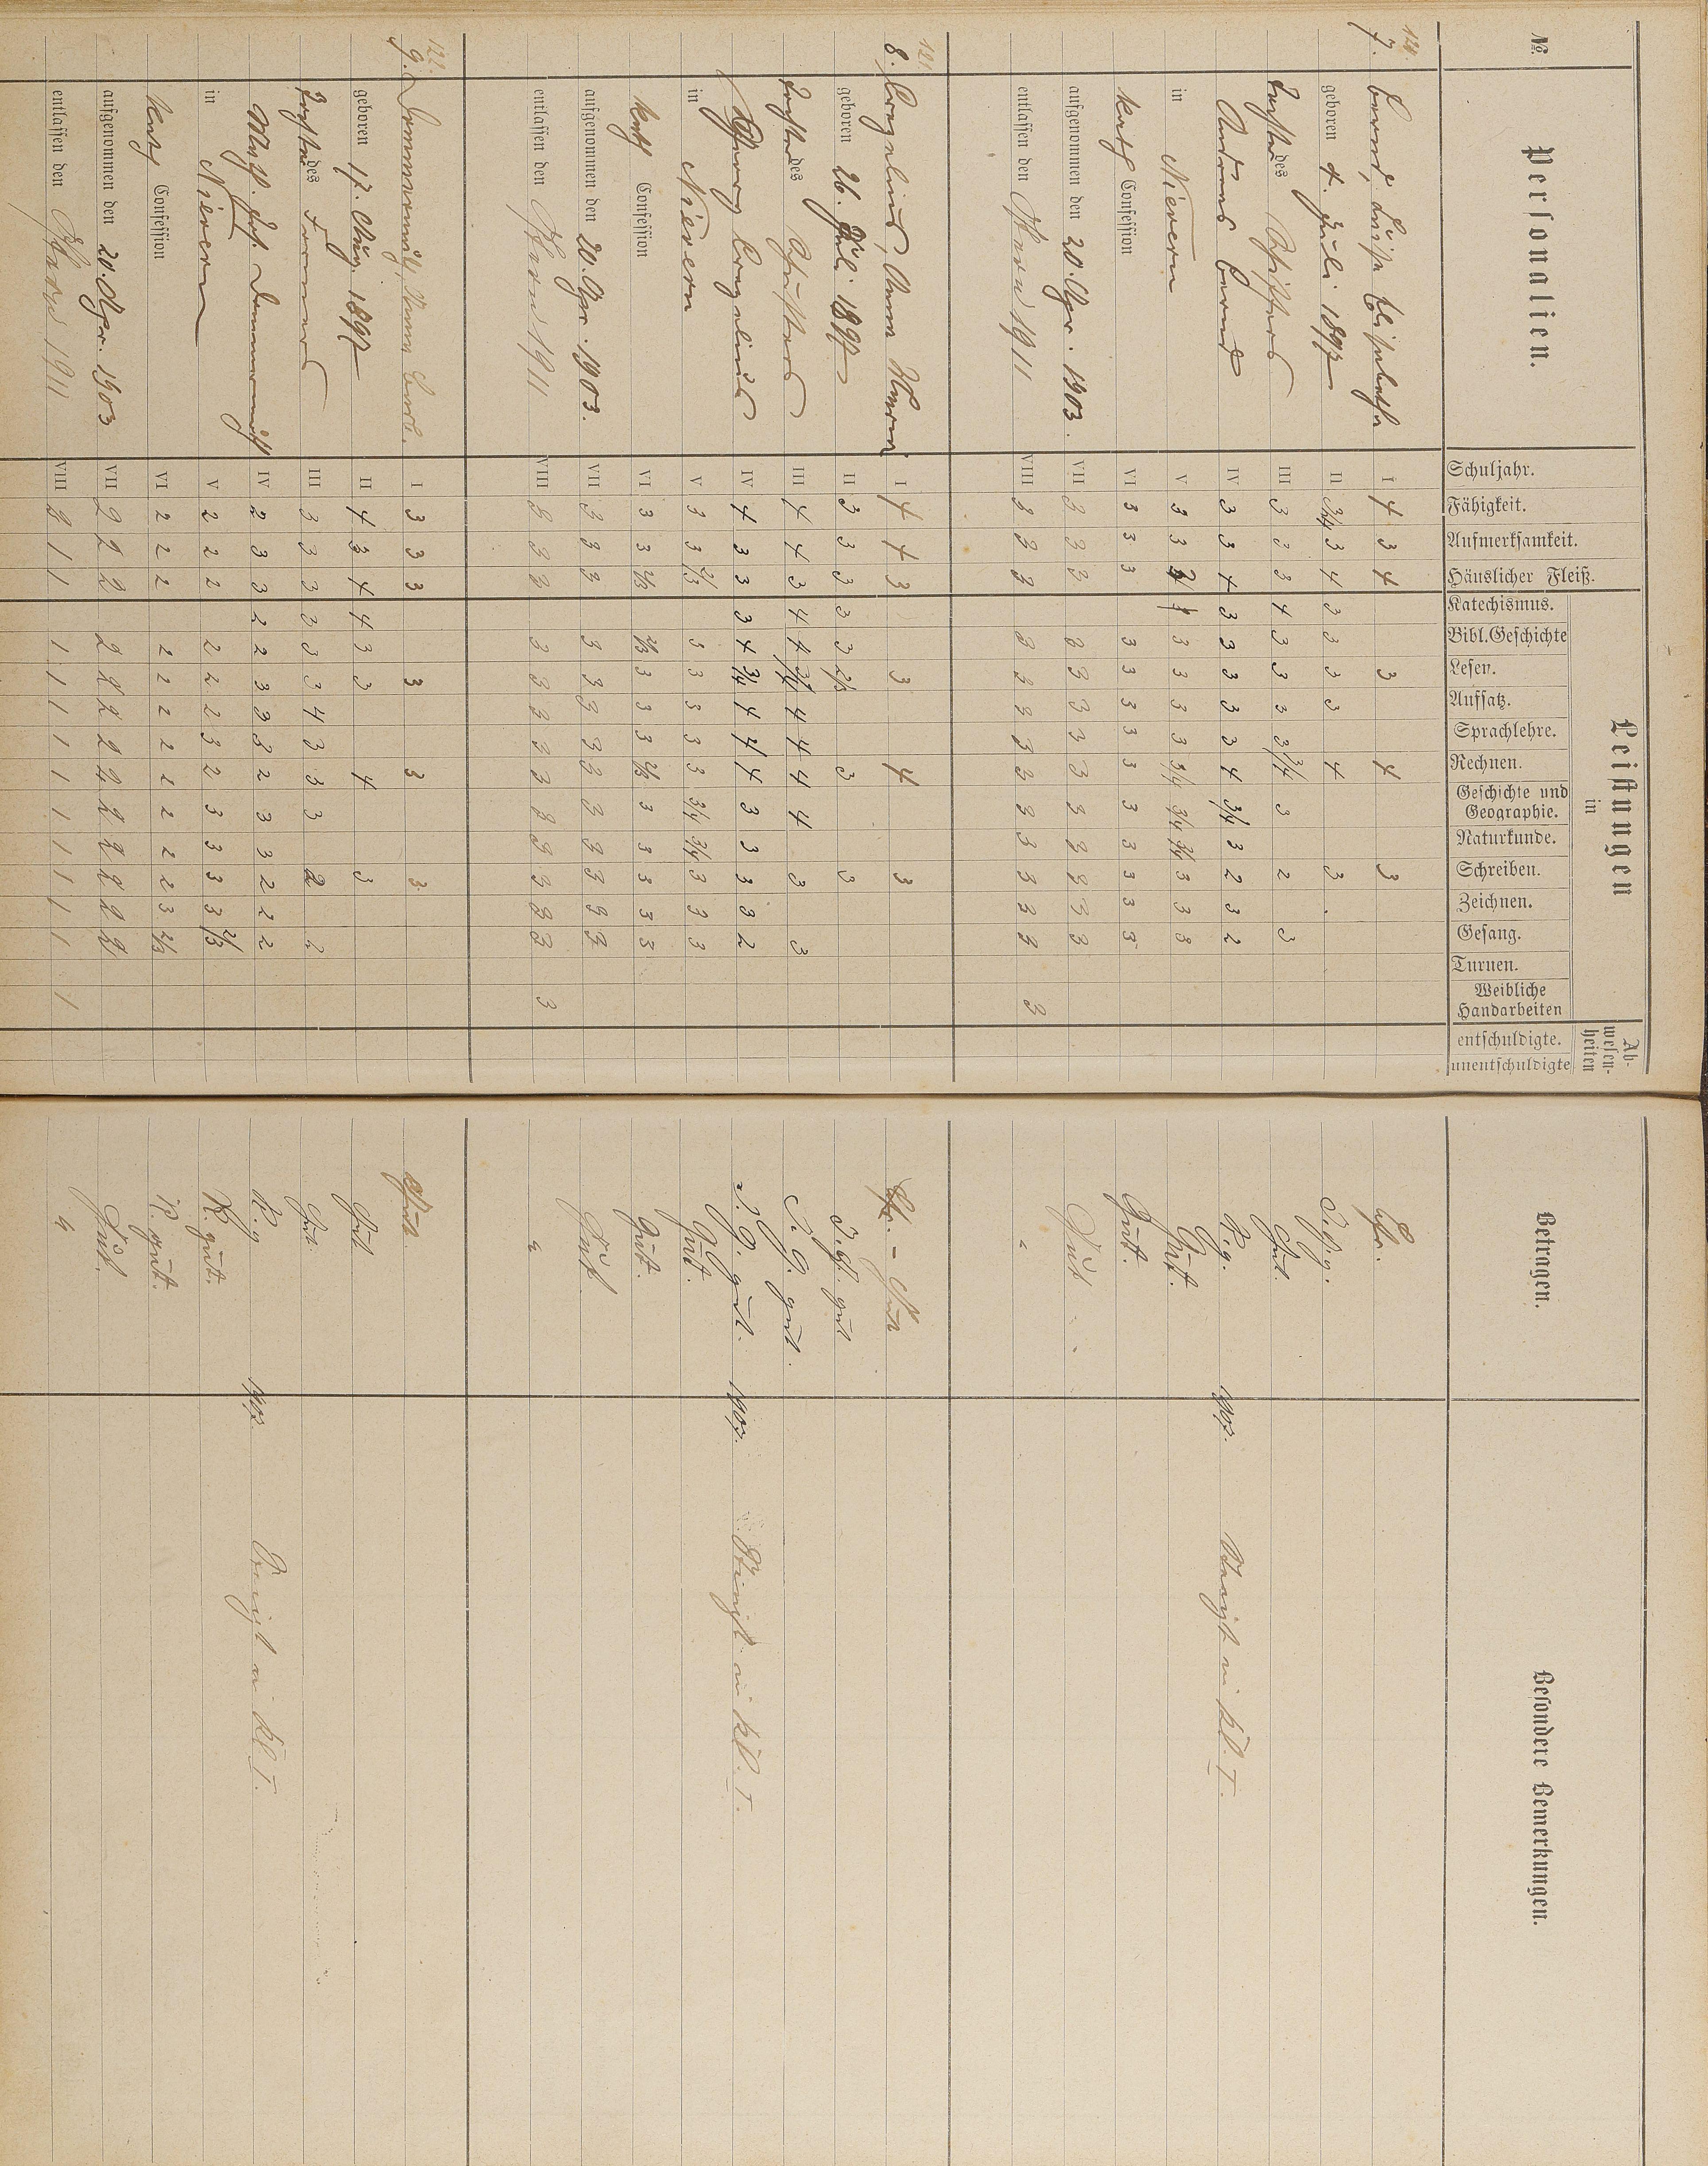 №. Personalien. Schuljahr. Fähigkeit. Aufmerksamkeit. Häuslicher Fleiß. Leistungen in Katechismus. Bibl. Geschichte Lesen. Aufsatz. Sprachlehre. Rechnen. Geschichte und Geographie. Naturkunde. Schreiben. Zeichnen. Gesang. Turnen. Weibliche Handarbeiten Abwesenheiten entschuldigte. unentschuldigte Betragen. Besondere Bemerkungen.
120.
7. Bernd, Luise Elisabetha I 4 3 4 3 4 3
geboren 4. Juli 1897 II 3/4 3 4 3 3 3 3 4 3
Tochter des Schiffers III 3 3 3 4 3 3 3 3 3/4 3 2 3 Gut.
Andreas Bernd IV 3 3 4 3 3 3 3 3 4 3/4 3 2 3 2 R. g. 1907. Steigt in Kl. I.
in Nievern V 3 3 3 3 3 3 3/4 3/4 3/4 3 3 3 G. Gut.
kath Confession VI 3 3 3 3 3 3 3 3 3 3 3 3 3 Gut.
aufgenommen den 20. Apr. 1903. VII 3 3 3 3 3 3 3 3 3 3 3 3 3 Gut
entlassen den Ostern 1911 VIII 3 3 3 3 3 3 3 3 3 3 3 3 3 3 "
121.
8. Cregelius, Anna Maria I 4 4 3 3 4 3 Gut
geboren 26. Juli 1897 II 3 3 3 3 3 2/3 3 3 gut
Tochter des Schusters III 4 4 3 4 4 3/4 4 4 4 4 3 3 gut.
Georg Cregelius IV 4 3 3 3 4 3/4 4 4 4 3 3 3 3 2 gut. 1907. Steigt in Kl. I.
in Nievern V 3 3 2/3 3 3 3 3 3 3/4 3/4 3 3 3 Gut.
kath Confession VI 3 3 2/3 2/3 3 3 3 2/3 3 3 3 3 3 Gut.
aufgenommen den 20. Apr. 1903. VII 3 3 3 3 3 3 3 3 3 3 3 3 3 Gut
entlassen den Ostern 1911 VIII 3 3 3 3 3 3 3 3 3 3 3 3 3 3 "
122.
9. Dommermuth, Anna I 3 3 3 3 3 3 Gut
geboren 17. Aug. 1897 II 4 3 4 4 3 3 4 3 Gut
Tochter des Formers III 3 3 3 3 3 3 4 3 3 3 2 2 Gut.
Jos. Dommermuth IV 2 3 3 2 2 3 3 3 2 3 3 2 2 2 R. g 1907. Steigt in Kl. I.
in Nievern V 2 2 2 2 2 2 3 2 3 3 3 3 2/3 R. gut.
kath Confession VI 2 2 2 2 2 2 2 2 2 2 2 3 2/3 R. gut.
aufgenommen den 20. Apr. 1903 VII 2 2 2 2 2 2 2 2 2 2 2 2 2 Gut.
entlassen den Ostern 1911 VIII 2 1 1 1 1 1 1 1 1 1 1 1 1 1 "